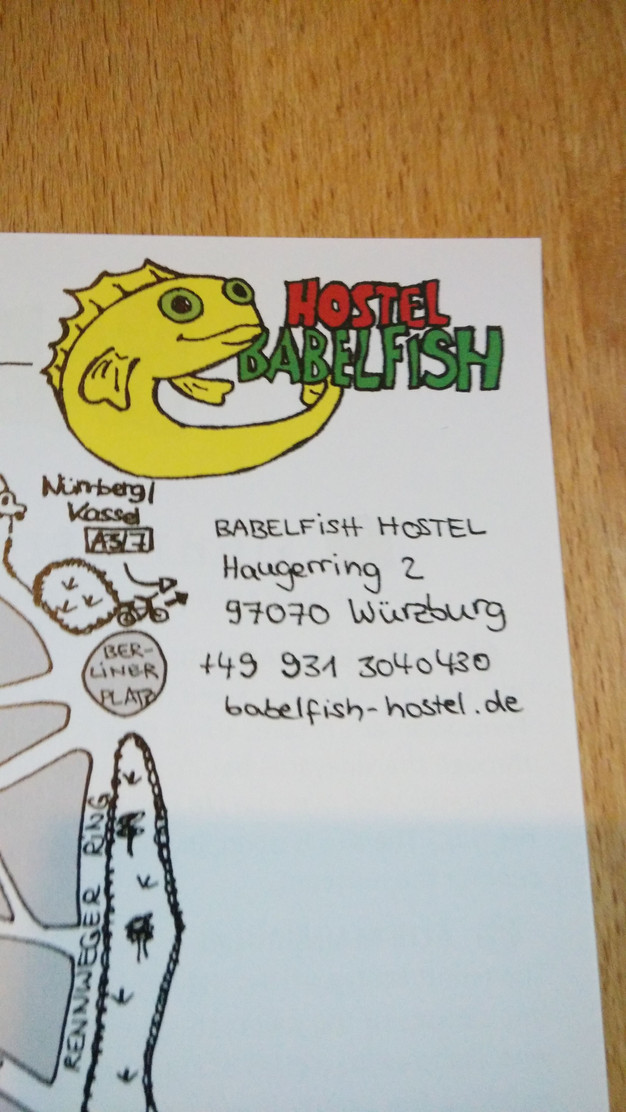 HOSTEL
BABELFiSH
Nürnberg/
Kassel
A3/7
BABELFiSH HOSTEL
Haugerring 2
97070 Würzburg
+49 931 3040430
babelfish-hostel.de
BER-
LiNER
PLATZ
RENNWEGER RING